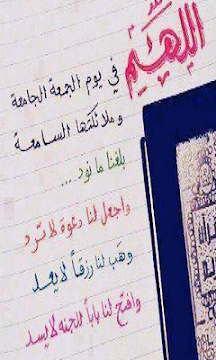 اللهم
في يوم الجمعة الجامعة
وملائكتها السامعة
بلغنا ما نود....
واجعل لنا دعوة لا ترد
وهب لنا رزقاً لا يعد
وافتح لنا باباً للجنه لا يسد